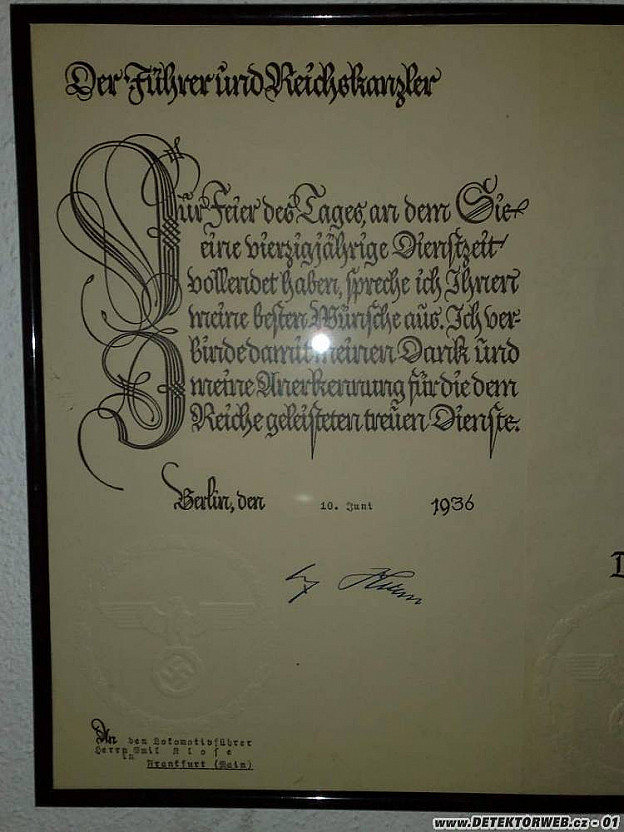 Der Führer und Reichskanzler
Zur Feier des Tages, an dem Sie
eine vierzigjährige Dienstzeit
vollendet haben, spreche ich Ihnen
meine besten Wünsche aus. Ich ver-
binde damit meinen Dank und
meine Anerkennung für die dem
Reiche geleisteten treuen Dienste.
Berlin, den 10. Juni 1936
An den Lokomotivführer
Herrn Emil Klose
in
Frankfurt (Main)
www.DETEKTORWEB.cz - 01